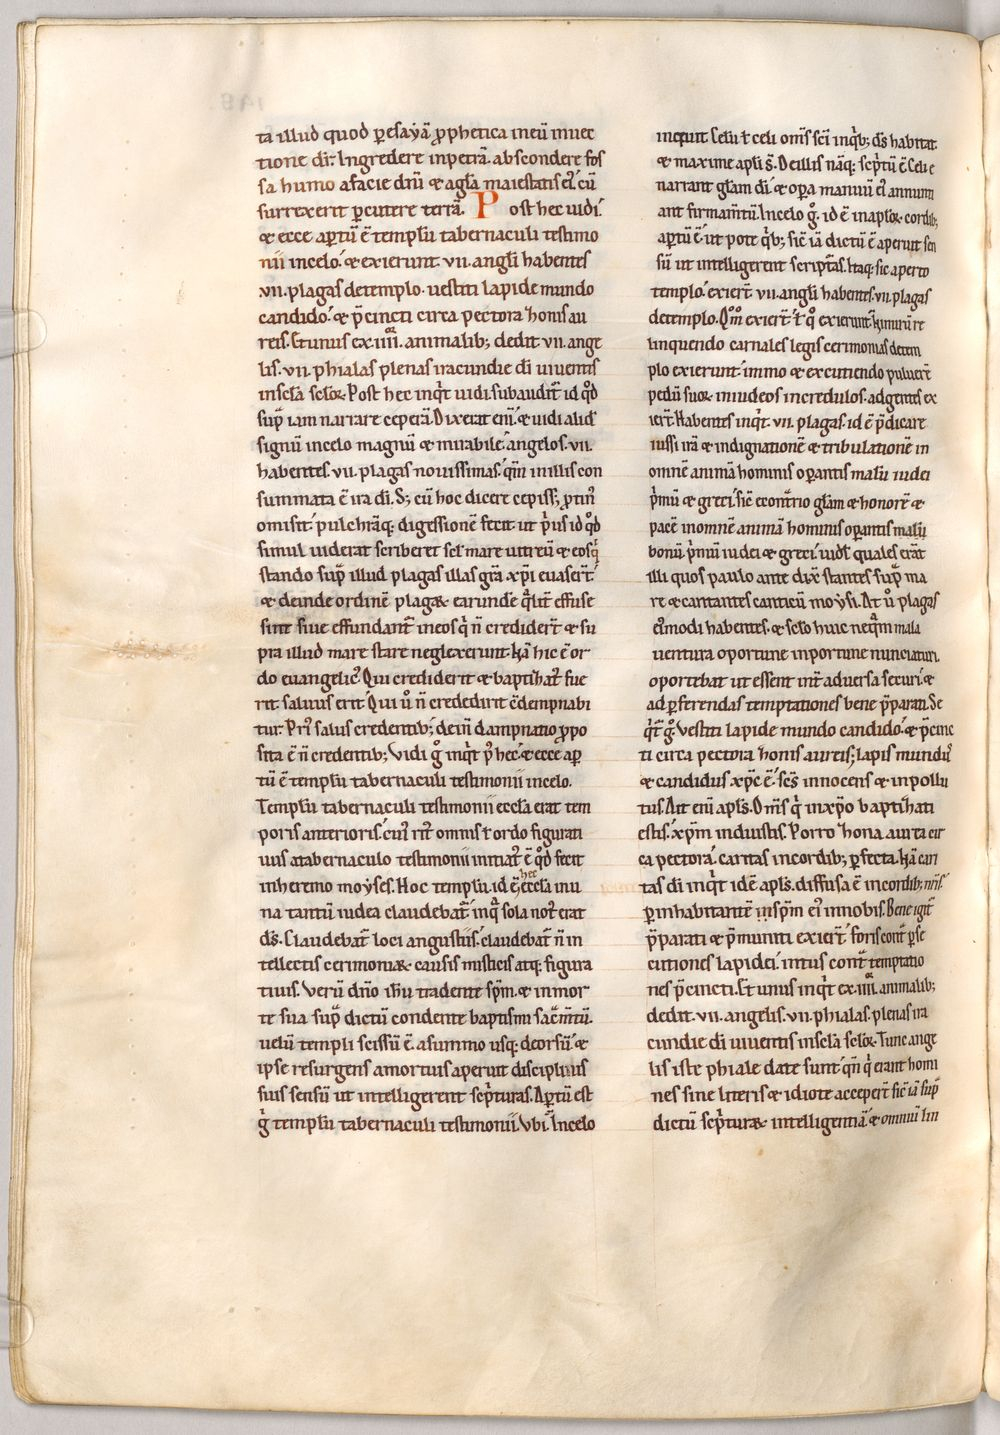 ta illud quod p̄ esayā ꝓphetica meū inuec
tione di: Ingredere in petrā. abscondere fos
sa humo a facie dñi & a gl̄a maiestatis eī. cū
surrexerit ꝑcutere terrā. Post hec uidi.
& ecce aꝑtū ē templū tabernaculi testimo
nii in celo. & exierunt .vii. angl̄i habentes
.vii. plagas de templo. uestiti lapide mundo
candido. & p̄cincti circa pectora zonis au
reis. Et unus ex .iiii. animalib; dedit .vii. ange
lis .vii. phialas plenas iracundie dī uiuentis
in sclā sclo℞. Post hec inq̄t uidi. subaudit̄ id qđ
sup̄ iam narrare ceperā. Dixerat eni. & uidi aliđ
signū in celo magnū & mirabile. angelos .vii.
habentes .vii. plagas nouissimas. qm̄ in illis con
summata ē ira di. S; cū hoc dicere cepiss; ꝓtin̄
omisit. pulchrāq; digessionē fecit. ut p̄us id qđ
simul uiderat scriberet. scl̄ mare uitreū & eos q̄
stando sup̄ illud plagas illas gr̄a xp̄i euaser̄t.
& deinde ordinē plaga℞ earundē q̄lit̄ effuse
sint siue effundant̄ in eos q̄ n̄ credider̄t & su
pra illud mare stare neglexerunt. Nā hic ē or
do euangelic̄. Qui crediderit & baptizat̄ fue
rit saluus erit. Qui u̾o n̄ crediderit c̄dempnabi
tur. Pri̾ salus credentib; dein̄ dampnatio ꝓpo
sita ē n̄ credentib; Vidi g̾o inq̄t p̾ hec. & ecce aꝑ
tū ē templū tabernaculi testimonii in celo.
Templū tabernaculi testimonii eccl̄a erat tem
poris anterioris. cui̾ rit̾ omnis ł ordo figurati
uus a tabernaculo testimonii initiat̾ ē qđ fecit
in heremo moyses. Hoc templū. id ē hec eccl̄a in u
na tantū iudea claudebat̄. in q̄ sola not̾ erat
ds̄. Claudebat̄ loci angustiis. claudebat̄ n̄ in
tellectis cerimonia℞ causis misticis atq; figura
tiuis. Verū dn̄o ih̄u tradente spm̄. & in mor
te sua sup̄ dictū condente baptismi sac̄m̄tū.
uelū templi scissū ē. a summo usq; deorsū. &
ipse resurgens a mortuis aperuit discipulis
suis sensū ut intelligerent sc̄pturas. Aꝑtū est
g̾ templū tabernaculi testimonii. Vbi. In celo
inquit. Celū ł celi om̄s sc̄i in q̄b; ds̄ habitat
& maxime apl̄i s̄. De illis nāq; sc̄ptū ē Celi e
narrant gl̄am dī. & oꝑa manuū ei̾ annunti
ant firmam̄tū. In celo g̾. id ē in apl̄o℞ cordib;
aꝑtū ē. ut pote q̄b; sic̄ iā dictū ē aperuit sen
sū ut intelligerent script̄as. Itaq; sic aperto
templo. exier̄t .vii. angl̄i habentes .vii. plagas
de templo. Qm̾o exier̄t ł q̾o exierunt. Nimirū re
linquendo carnales legis cerimonias de tem
plo exierunt. immo & excutiendo puluerē
pedū suo℞ in iudeos incredulos. ad gentes ex
ier̄t. Habentes inq̄t .vii. plagas. id ē p̄dicare
iussi irā & indignationē & tribulationē in
omnē animā hominis oꝑantis malū iudei
p̄mū & greci. sic̄ econt̄rio gl̄am & honorē &
pacē in omnē animā hominis oꝑantis malū
bonū p̄mū iudei & greci. uidl̄ quales erāt
illi quos paulo ante dix̄ stantes sup̄ ma
re & cantantes canticū moysi. At u̾o plagas
ei̾modi habentes. & scl̄o huic neq̄m mala
uentura oportune inportune nunciaturi.
oportebat ut essent int̄ aduersa securi. &
ad ꝑferendas temptationes bene p̄parati. Se
q̄t̄ g̾. Vestiti lapide mundo candido. & p̄cinc
ti circa pectora zonis aureis; lapis mundus
& candidus xp̄c ē. sc̄s innocens & inpollu
tus. Ait eni apl̄s. Om̄s q̄ in xp̄o baptizati
estis. xp̄m induistis. Porro zona aurea cir
ca pectora. caritas in cordib; ꝑfecta. Nā cari
tas dī inq̄t idē apl̄s. diffusa ē in cordib; nr̄is.
ꝑ inhabitantē spm̄ ei̾ in nobis. Bene igit̄
p̄parati & p̄muniti exier̄t. foris cont̄ ꝑse
cutiones lapidei. intus cont̄ temptatio
nes p̄cincti. Et unus inq̄t ex .iiii. animalib;
dedit .vii. angelis .vii. phialas plenas ira
cundie dī uiuentis in sclā sclo℞. Tunc ange
lis iste phiale date sunt. qn̄ q̄ erant homi
nes sine literis & idiote acceper̄t sic̄ iā sup̄
dictū sc̄ptura℞ intelligentiā. & omniū lin